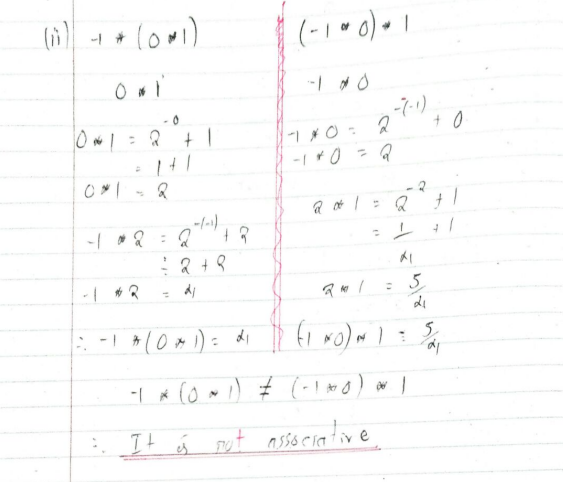 (ii) -1 * (0 * 1)
0 * 1
0 * 1 = 2^-0 + 1
= 1 + 1
0 * 1 = 2
-1 * 2 = 2^-(-1) + 2
= 2 + 2
-1 * 2 = 4
∴ -1 * (0 * 1) = 4
(-1 * 0) * 1
-1 * 0
-1 * 0 = 2^-(-1) + 0
-1 * 0 = 2
2 * 1 = 2^-2 + 1
= 1/4 + 1
2 * 1 = 5/4
(-1 * 0) * 1 = 5/4
-1 * (0 * 1) ≠ (-1 * 0) * 1
∴ It is not associative